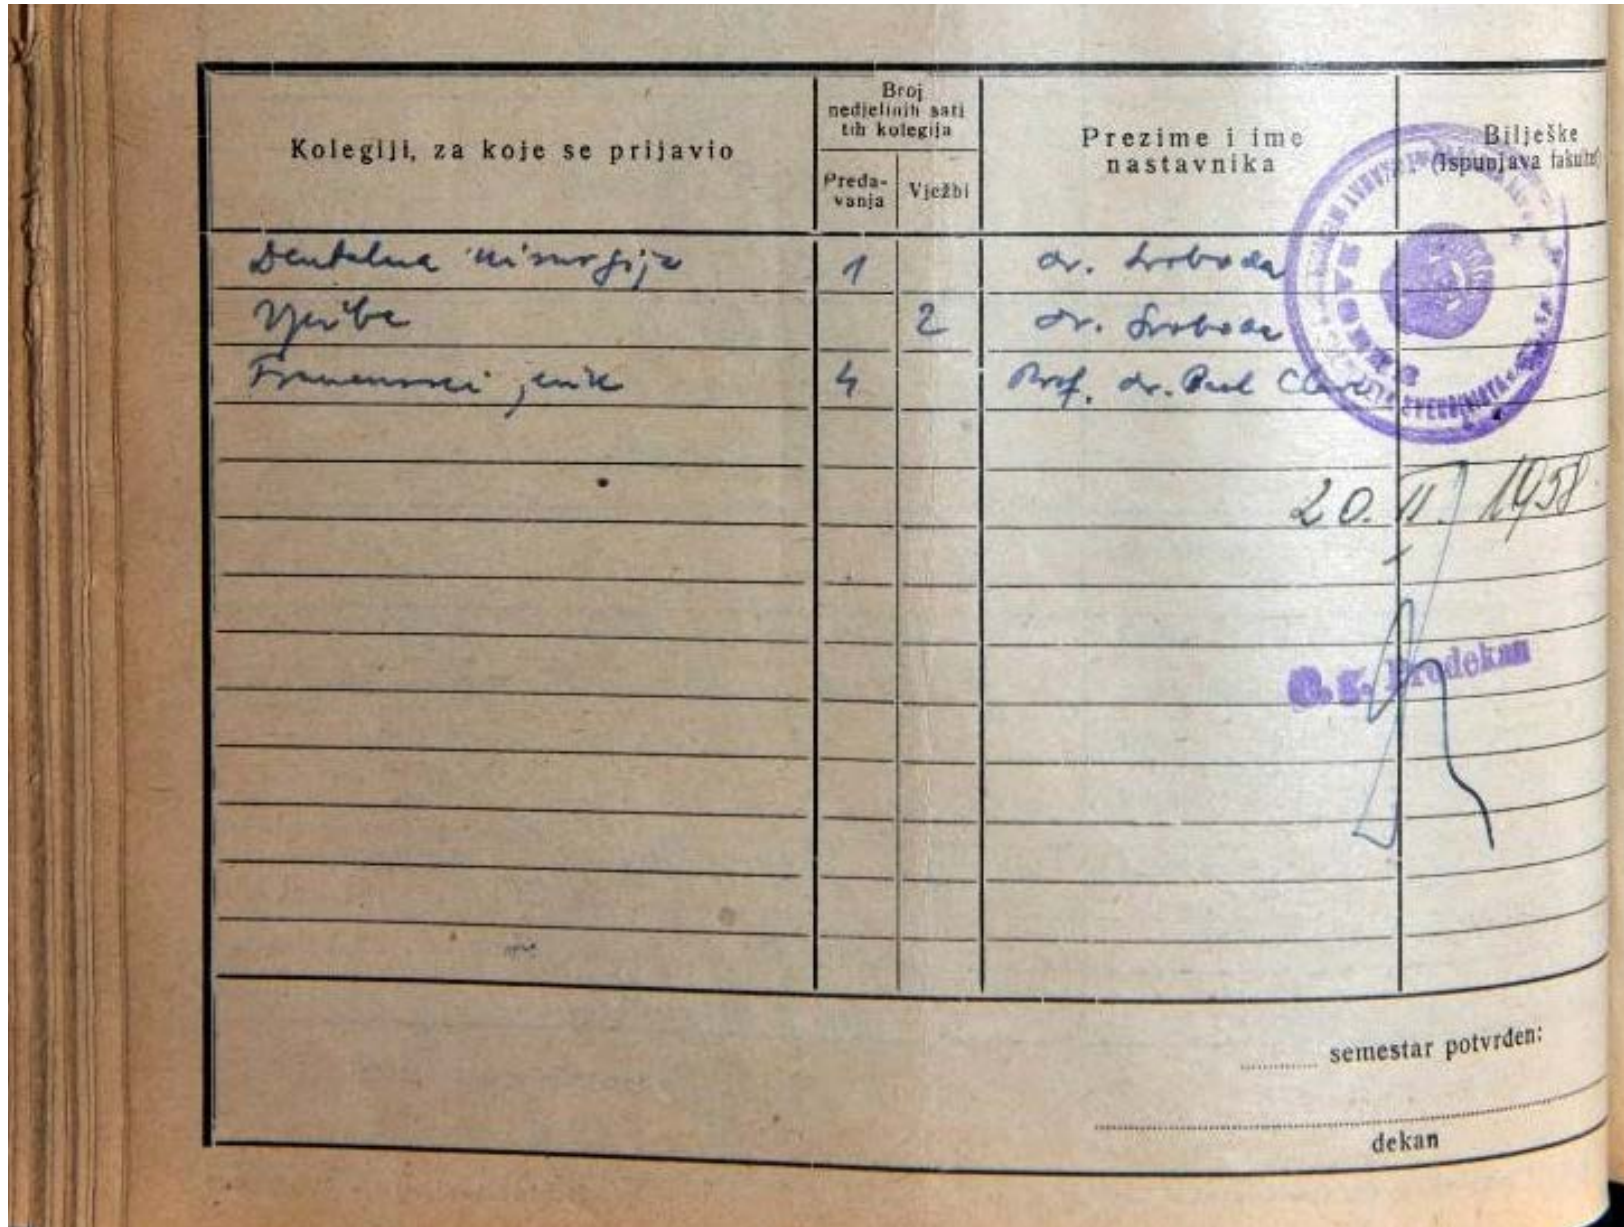 Kolegiji, za koje se prijavio
Broj
nedjeljnih sati
tih kolegija
Preda-
vanja
Vježbi
Prezime i ime
nastavnika
Bilješke
(Ispunjava fakultet)
Dentalna kirurgija 1 dr. Svoboda
Vježbe 2 dr. Svoboda
Francuski jezik 4 Prof. dr. Paul
20. II. 1958
Prodekan
semestar potvrđen:
dekan